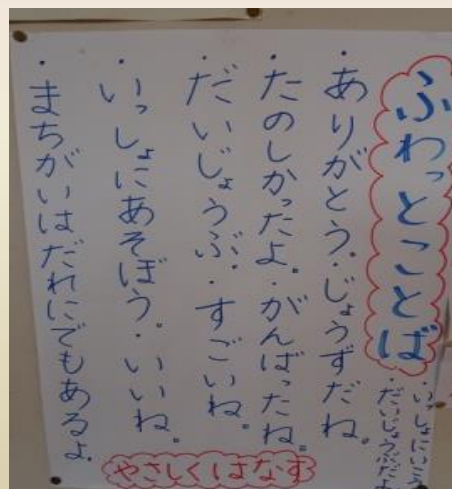 ふわっとことば
・いっしょにいこう
・だいじょうぶだよ
・ありがとう。・じょうずだね。
・たのしかったよ。・がんばったね。
・だいじょうぶ。・すごいね。
・いっしょにあそぼう。・いいね。
・まちがいはだれにでもあるよ。
やさしくはなす